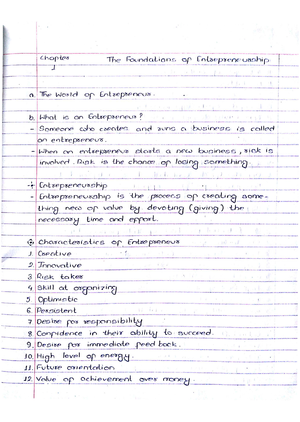 Chapter 1 The Foundations of Entrepreneurship
a. The World of Entrepreneur.
b. What is an Entrepreneur?
- Someone who creates and runs a business is called
an entrepreneur.
- When an entrepreneur starts a new business, risk is
involved. Risk is the chance of losing something.
Entrepreneurship
- Entrepreneurship is the process of creating some-
thing new of value by devoting (giving) the
necessary time and effort.
Characteristics of Entrepreneur
1. Creative
2. Innovative
3. Risk taker
4. Skill at organizing
5. Optimistic
6. Persistent
7. Desire for responsibility
8. Confidence in their ability to succeed.
9. Desire for immediate feed back.
10. High level of energy.
11. Future orientation
12. Value of achievement over money